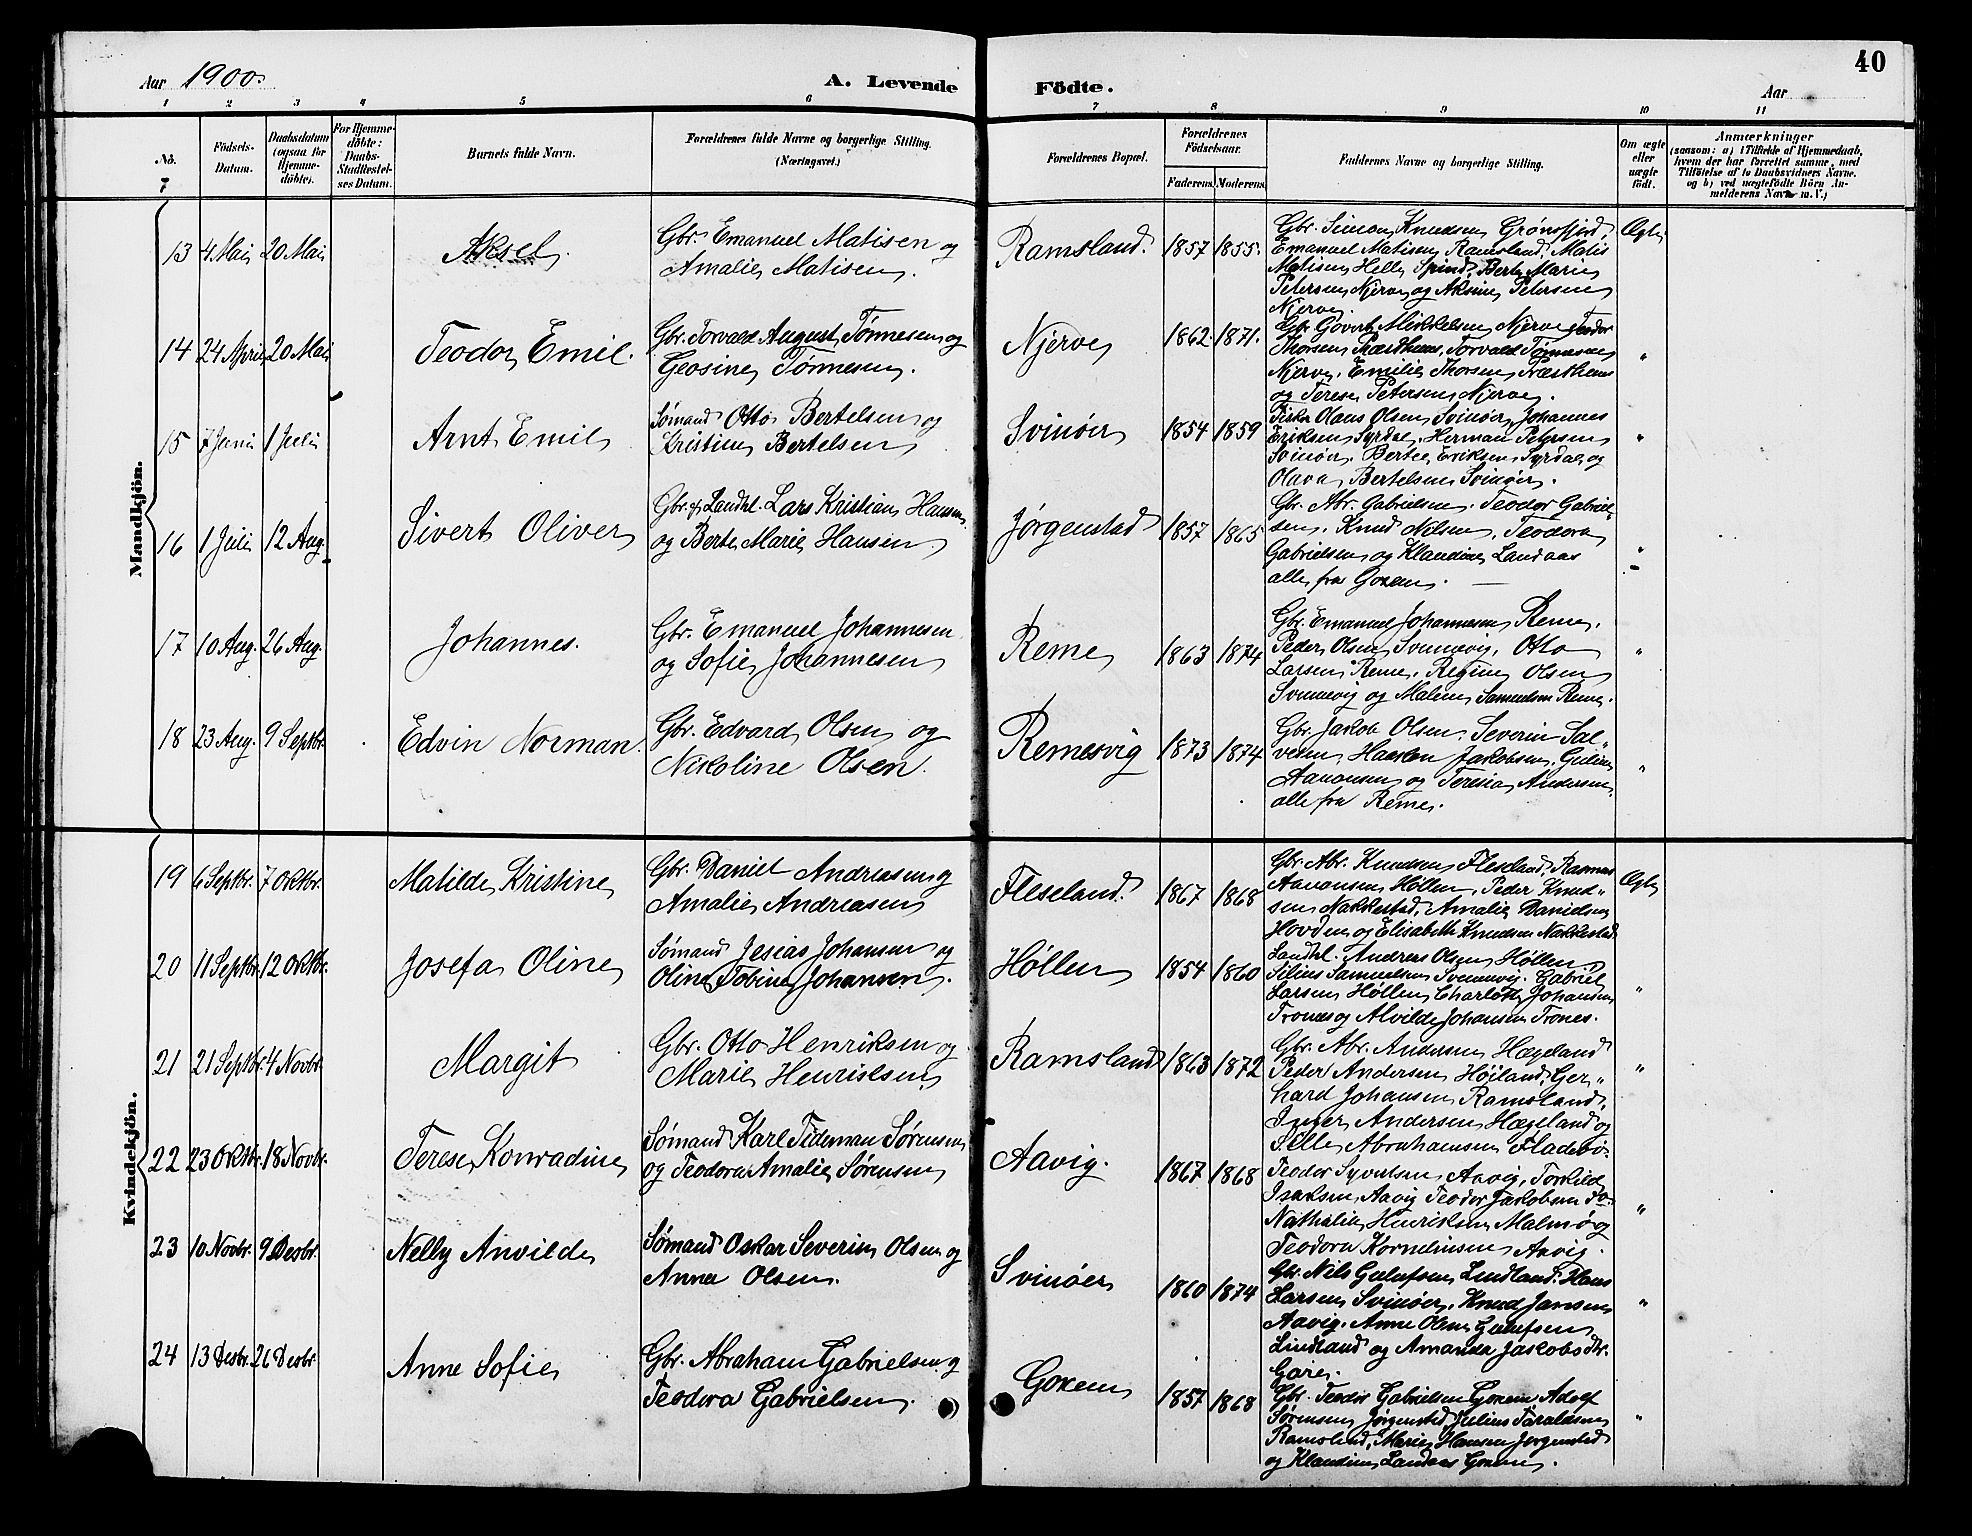 40
Aar 1900.
A. Levende Födte.
Aar
1 2 3 4 5 6 7 8 9 10 11
No.
Födsels-
Datum.
Daabsdatum
(ogsaa for
Hjemme-
döbte).
For Hjemme-
döbte:
Daabs-
Stadfæstel-
ses Datum.
Barnets fulde Navn.
Forældrenes fulde Navne og borgerlige Stilling.
(Næringsvei.)
Forældrenes Bopæl.
Forældrenes
Födselsaar.
Faderens. Moderens.
Faddernes Navne og borgerlige Stilling.
Om ægte
eller
uægte
født.
Anmærkninger
(saasom: a) i Tilfælde af Hjemmedaab,
hvem der har forrettet samme, med
Tilföielse af to Daabsvidners Navne,
og b) ved uægtefödte Börn An-
melderens Navn m. V.)
Mandkjön.
13 4 Mai 20 Mai Aksel.
Gbr. Emanuel Matisen og
Amalie Matisen.
Ramsland. 1857 1855.
Gbr. Simon Knudsen Grønsfjord,
Emanuel Matisen Ramsland, Matis
Matisen Helle Spind, Berte Marie
Petersen Njerve og Aksine Petersen
Njerve.
Ægte
14 24 April 20 Mai Teodor Emil.
Gbr. Torvald August Tønnesen og
Geosine Tønnesen.
Njerve 1862. 1871.
Gbr. Govert Mikkelsen Njerve, Teodor
Thorsen Præsthus, Torvald Tønnesen
Njerve, Emilie Thorsen Præsthus
og Terese Petersen Njerve.
"
15 7 Juni 1 Juli Arnt Emil
Sømand Otto Bertelsen og
Kristine Bertelsen
Svinøer 1854 1859
Fisker Olaus Olsen Svinøer, Johannes
Eriksen Syrdal, Herman Petersen
Svinøer, Bertee Eriksen Syrdal og
Olava Bertelsen Svinøer.
"
16 1 Juli 12 Aug. Sivert Oliver
Gbr. og Landhl. Lars Kristian Hansen
og Berte Marie Hansen
Jørgenstad 1857 1865
Gbr. Abr. Gabrielsen, Teodor Gabriel-
sen, Knud Nilsen, Teodora
Gabrielsen og Klaudine Landaas
alle fra Goxem.
"
17 10 Aug. 26 Aug. Johannes.
Gbr. Emanuel Johannesen
og Sofie Johannesen
Reme 1863 1874
Gbr. Emanuel Johannesen Reme,
Peder Olsen Svinevig, Otto
Larsen Reme, Regine Olsen
Svinevig og Malene Samuelsen Reme.
"
18 23 Aug. 9 Septbr. Edvin Norman.
Gbr. Edvard Olsen og
Nikoline Olsen.
Remesvig 1873 1874
Gbr. Jakob Olsen, Severin Sal-
vesen, Haakon Jakobsen, Guline
Aanonsen og Teresia Andersen,
alle fra Reme.
"
Kvindekjön.
19 6 Septbr. 7 Oktbr. Matilde Kristine
Gbr. Daniel Andreasen og
Amalie Andreasen
Fleseland. 1867 1868
Gbr. Abr. Knudsen Fleseland, Rasmus
Aanonsen Høllen, Peder Knud-
sen Nakkestad, Amalie Danielsen
Hovden og Elisabeth Knudsen Nakkestad.
Ægte
20 11 Septbr. 12 Oktbr. Josefa Oline
Sømand Jesias Johansen og
Oline Tobine Johansen.
Høllen 1854 1860
Landhl. Andreas Olsen Høllen,
Silius Samuelsen Svennevig, Gabriel
Larsen Høllen, Charlotte Johansen
Trones og Alvilde Johansen Trones.
"
21 21 Septbr. 4 Novbr. Margit
Gbr. Otto Henriksen og
Marie Henriksen.
Ramsland 1863 1872
Gbr. Abr. Andersen Hægeland
Peder Andersen Høiland, Ger-
hard Johansen Ramsland,
Inger Andersen Hægeland og
Sille Abrahamsen Fladebø.
"
22 23 Oktbr. 18 Novbr. Terese Konradine
Sømand Karl Tideman Sørensen
og Teodora Amalie Sørensen
Aavig. 1867 1868
Teodor Syvertsen Aavig, Torkild
Isaksen Aavig, Teodor Jakobsen do
Nathalie Henriksen Malmø og
Teodora Kornelinsen Aavig.
"
23 10 Novbr. 9 Desbr. Nelly Anvilde
Sømand Oskar Severin Olsen og
Anna Olsen.
Svinøer 1860 1874
Gbr. Nils Gulufsen Lindland, Hans
Larsen Svinøer, Knud Jansen
Aavig, Anne Olene Gulufsen
Lindland og Amanda Jakobsdtr.
Gare.
"
24 13 Desbr. 26 Desbr. Anne Sofie
Gbr. Abraham Gabrielsen og
Teodora Gabrielsen.
Goxem 1857 1868
Gbr. Teodor Gabrielsen Goxem, Adolf
Sørensen Jørgensted, Julius Taraldsen
Ramsland, Marie Hansen Jørgensted
og Klaudine Landaas Goxem.
"